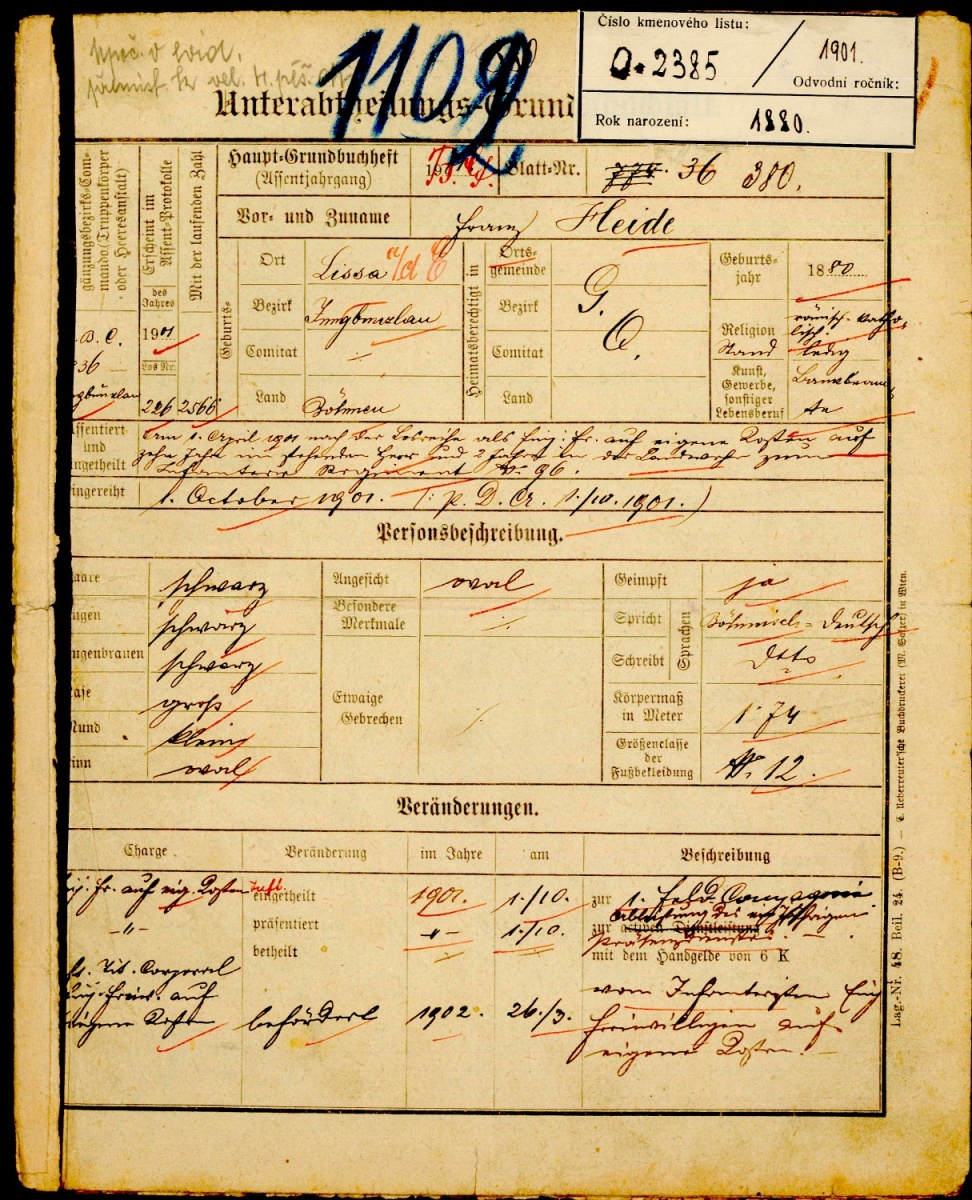 Číslo kmenového listu:
2385 / 1901.
Odvodní ročník:
Rok narození: 1880.
1102
Unterabtheilungs-Grund
gänzungsbezirks-Com-
mando (Truppenkörper
oder Heeresanstalt)
Erscheint im
Assent-Protokolle
Mit der laufenden Zahl
des
Jahres
1901
Los Nr.
226 2566
B. C.
36
Haupt-Grundbuchheft
(Assentjahrgang)
Blatt-Nr. 36 380.
Vor- und Zuname Franz Heide
Geburts-
Ort Lissa a/d E
Bezirk Jungbunzlau
Comitat
Land Böhmen
Heimatsberechtigt in
Orts-
gemeinde G.
Bezirk O.
Comitat
Land
Geburts-
jahr 1880
Religion römisch-katho-
lisch.
Stand ledig
Kunst,
Gewerbe,
sonstiger
Lebensberuf
ssentiert
und
ngetheilt
Am 1. April 1901 nach der Losreihe als Einj. Fr. auf eigene Kosten auf
zehn Jahre im stehenden Heer und 2 Jahre in der Landwehr zum
Infanterie Regiment Nr. 96.
ingereiht 1. October 1901. (: p. D. Cr. 1./10. 1901. )
Personsbeschreibung.
aare schwarz
ugen schwarz
ugenbrauen schwarz
ase groß
Mund klein
inn oval
Angesicht oval
Besondere
Merkmale
Etwaige
Gebrechen
Geimpft ja
Sprachen
Spricht Böhmisch - Deutsch
Schreibt Dtto
Körpermaß
in Meter 1·74
Größenclasse
der
Fußbekleidung Nr. 12.
Veränderungen.
Charge Veränderung im Jahre am Beschreibung
Fr. auf eig. Kosten eingetheilt 1901. 1./10. zur 1. Feld-Compagnie
-„- präsentiert -„- 1./10. zur activen Dienstleistung
Präsenzdienstes
betheilt mit dem Handgelde von 6 K
Tit. Corporal
Einj. Freiw. auf
eigene Kosten befördert 1902. 26./3. vom Infanteristen Einj
freiwilligen auf
eigene Kosten.
Lag.-Nr. 48. Beil. 24. (B-9.) — C. Ueberreuter'sche Buchdruckerei (M. Salzer) in Wien.